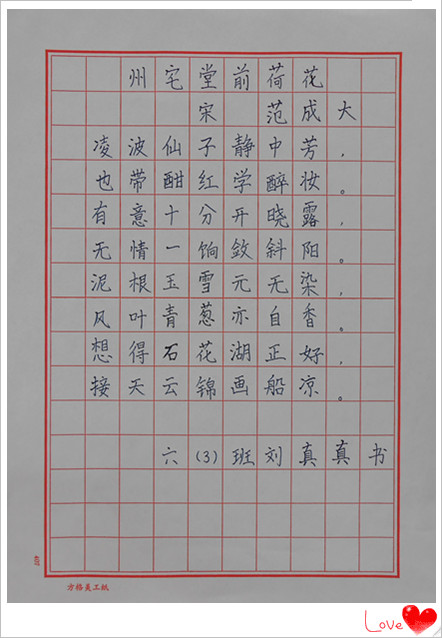 州宅堂前荷花
宋 范成大
凌波仙子静中芳，
也带酣红学醉妆。
有意十分开晓露，
无情一饷敛斜阳。
泥根玉雪元无染，
风叶青葱亦自香。
想得石花湖正好，
接天云锦画船凉。
六(3)班刘真真书
方格美工纸
Love